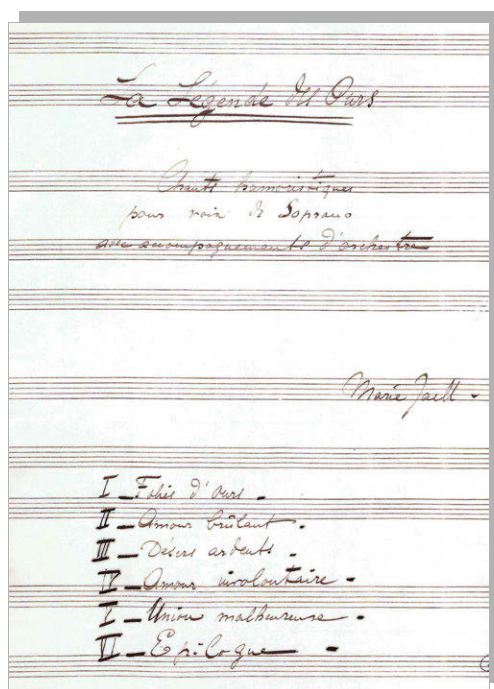 La Légende des Ours
Chants humoristiques
pour voix de Soprano
avec accompagnements d'orchestre
Marie Jaëll -
I _ Folies d'ours -
II _ Amour brûlant -
III _ Désirs ardents -
IV _ Amour involontaire -
V _ Union malheureuse -
VI _ Epilogue -